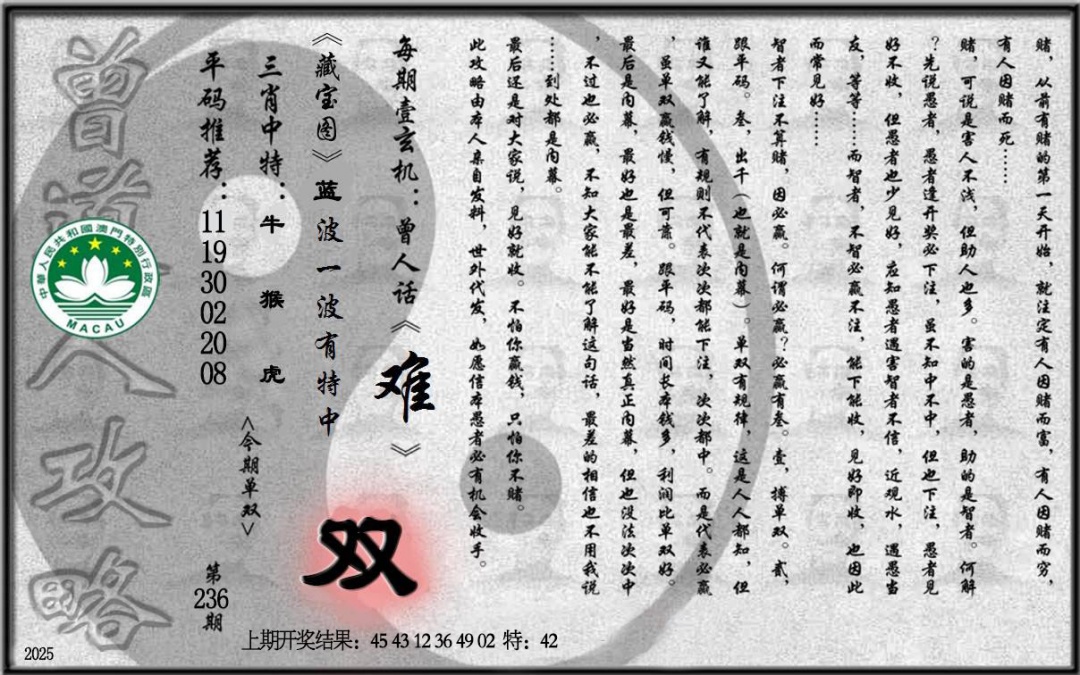 赌，从前有赌的第一天开始，就注定有人因赌而富，有人因赌而穷，
有人因赌而死……
赌，可说是害人不浅，但助人也多。害的是愚者，助的是智者。何解
？先说愚者，愚者逢开奖必下注，虽不知中不中，但也下注，愚者见
好不收，但愚者也少见好，应知愚者遇害智者不信，近观水，遇愚当
友，等等……而智者，不智必赢不注，能下能收，见好即收，也因此
而常见好……
智者下注不算赌，因必赢。何谓必赢？必赢有叁。壹，搏单双。贰，
跟平码。叁，出千（也就是内幕）。单双有规律，这是人人都知，但
谁又能了解，有规则不代表次次都能下注，次次都中。而是代表必赢
，虽单双赢钱慢，但可靠。跟平码，时间长本钱多，利润比单双好。
最后是内幕，最好也是最差，最好是当然真正内幕，但也没法次次中
，不过也必赢，不知大家能不能了解这句话，最差的相信也不用我说
……到处都是内幕。
最后还是对大家说，见好就收。不怕你赢钱，只怕你不赌。
此攻略由本人亲自发料，世外代发，如愿信本愚者必有机会收手。
每期壹玄机：曾人话《难》
《藏宝图》蓝波一波有特中
双
三肖中特：牛 猴 虎
<今期单双>
平码推荐：11 19 30 02 20 08
第236期
曾道人攻略
中華人民共和國澳門特別行政區
MACAU
上期开奖结果：45 43 12 36 49 02 特：42
2025